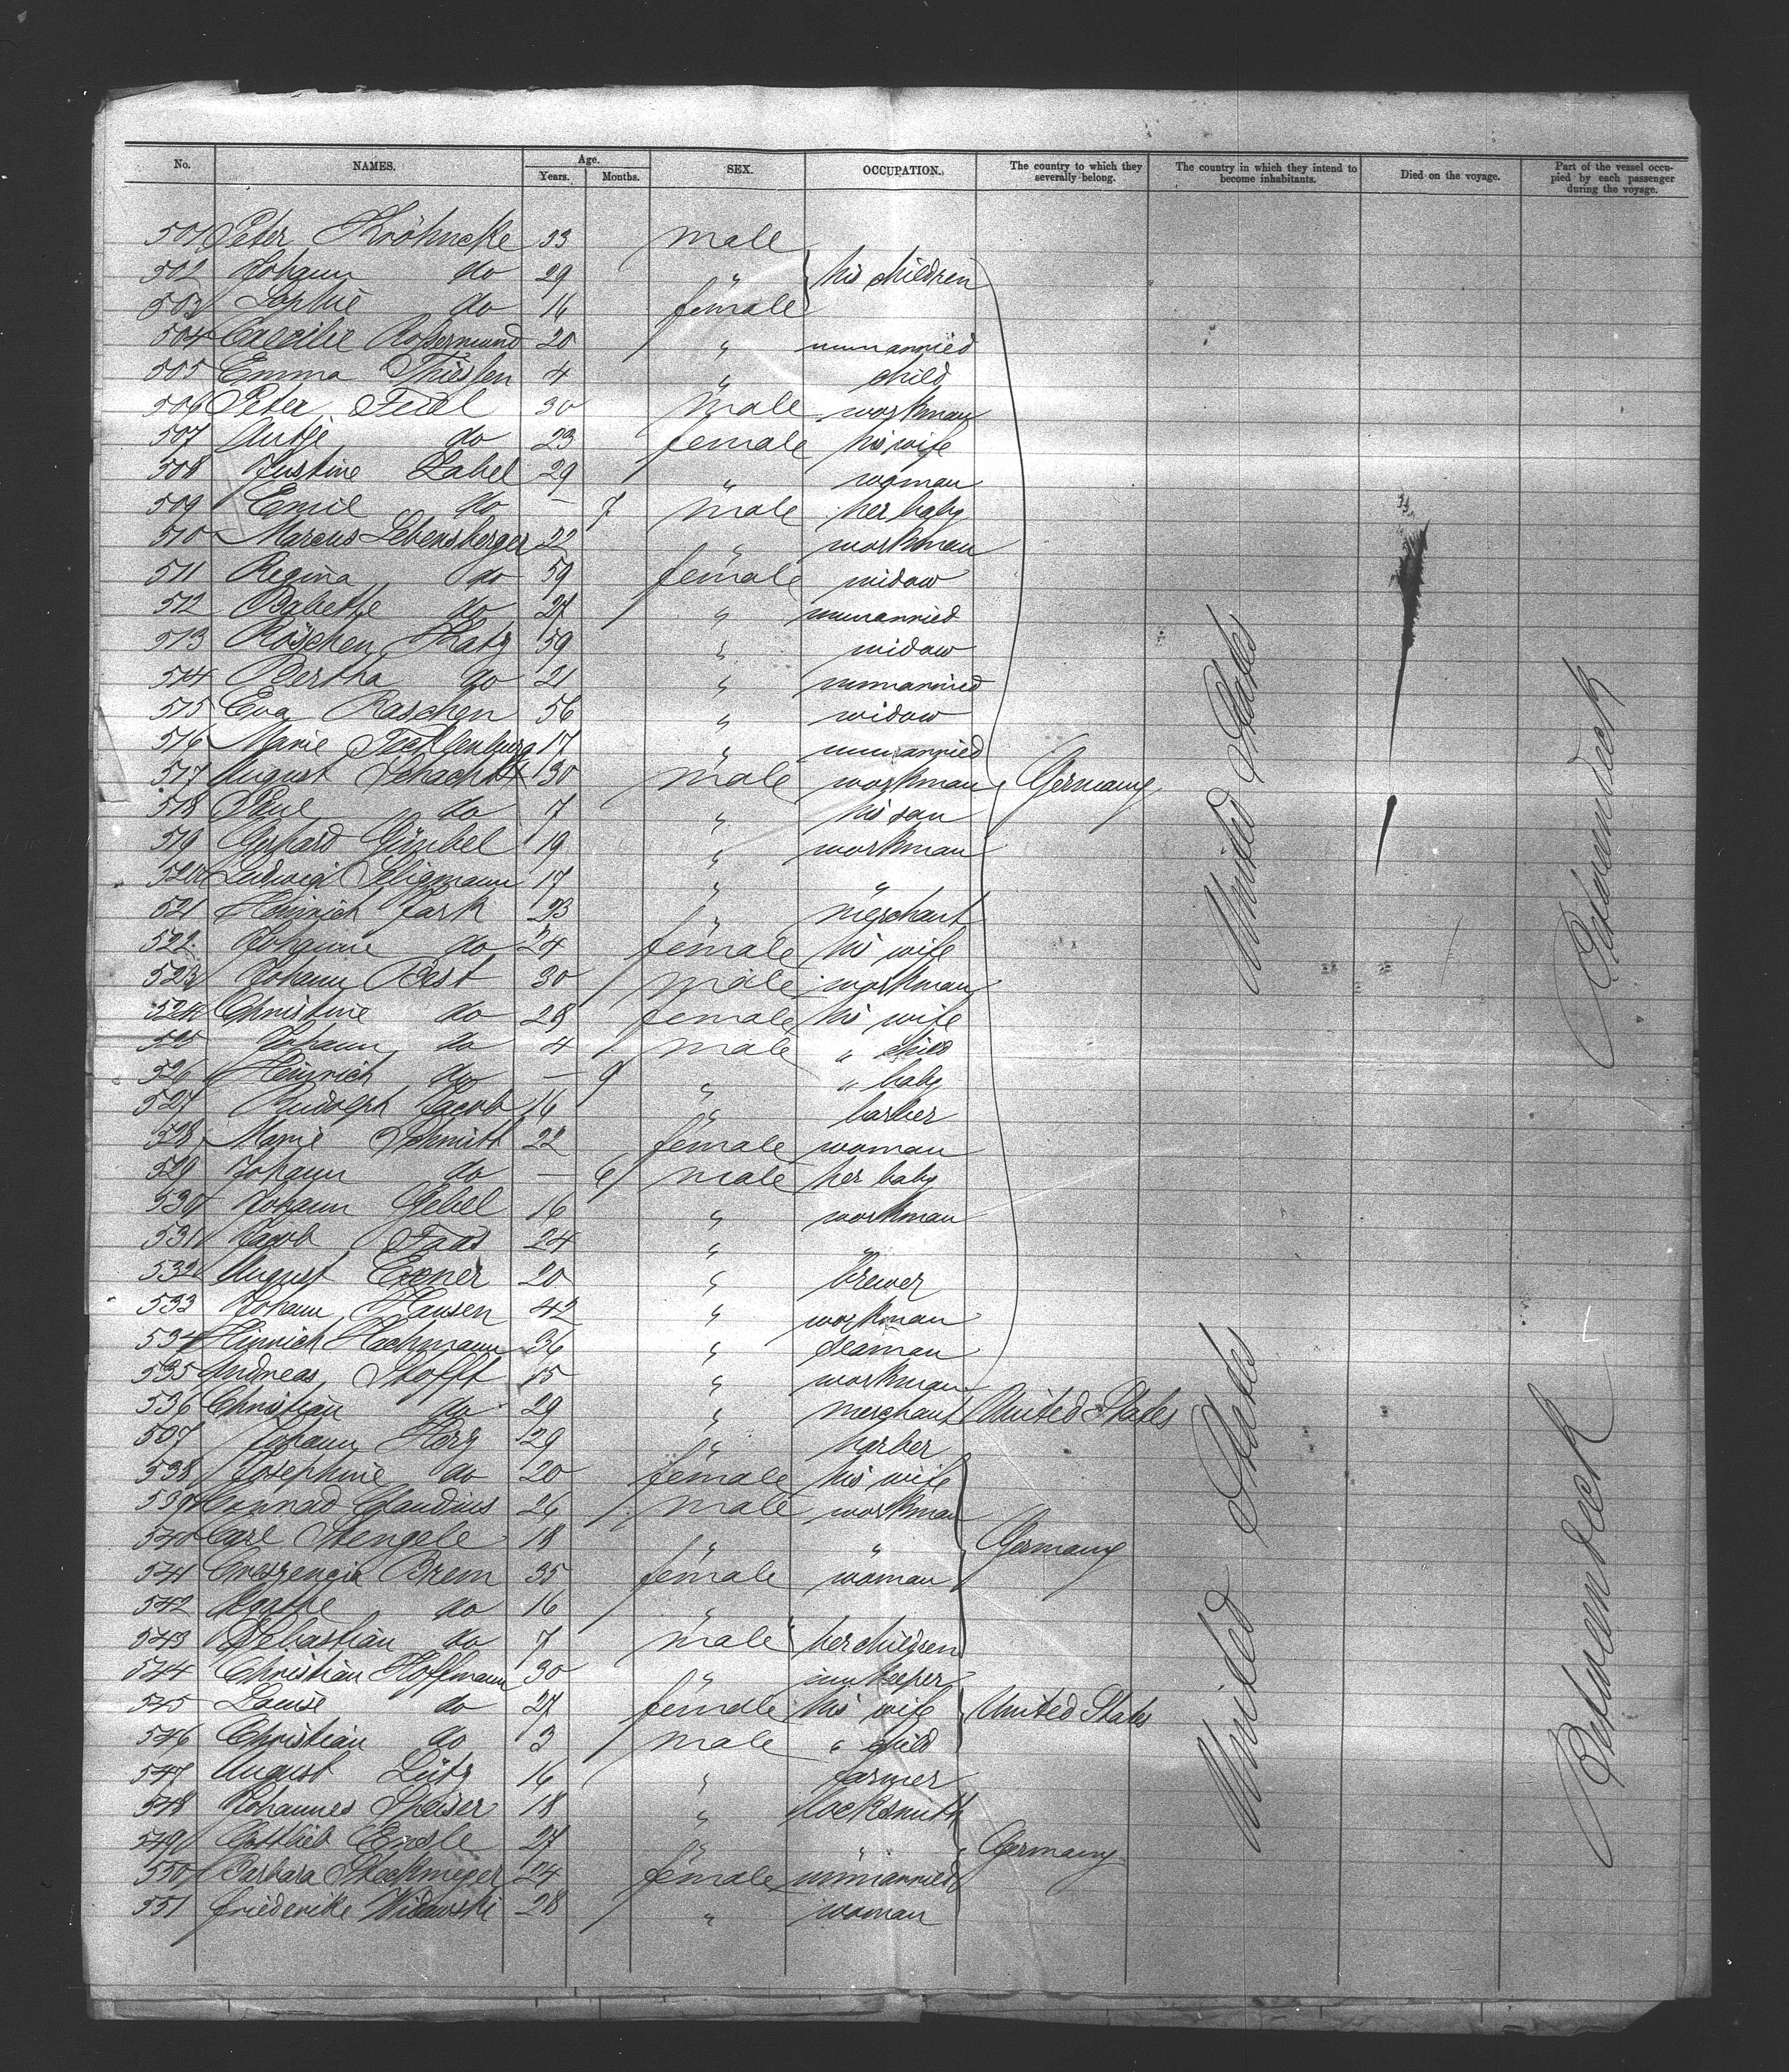 No. NAMES. Age. Years. Months. SEX. OCCUPATION. The country to which they severally belong. The country in which they intend to become inhabitants. Died on the voyage. Part of the vessel occupied by each passenger during the voyage.
501 Peter Kröhncke 53 male
502 Johann do 29 " his children
503 Sophie do 16 female
504 Caecilie 20 " unmarried
505 Emma Thiessen 4 " child
506 Peter 30 male workman
507 Antje do 23 female his wife
508 Justine Zabel 29 " woman
509 Emil do — 7 male her baby
510 Marcus Lebensberger 22 " workman
511 Regina do 59 female widow
512 Babette do 27 " unmarried
513 Röschen Katz 59 " widow
514 Bertha do 21 " unmarried
515 Eva Raschen 56 " widow
516 Marie Tecklenburg 17 " unmarried
517 August Schacht 30 male workman Germany
518 Paul do 7 " his son
519 Gerhard Gümbel 19 " workman
520 Ludwig Seligmann 17 " "
521 Heinrich Jark 23 " merchant
522 Johanne do 24 female his wife
523 Johann Best 30 male workman
524 Christine do 28 female his wife
525 Johann do 4 male " child
526 Heinrich do — 9 " " baby
527 Rudolph Jacob 16 " barber
528 Marie Schmitt 22 female woman
529 Johann do — 6 male her baby
530 Johann Gebel 16 " workman
531 Jacob Faas 24 " "
532 August Exner 20 " brewer
533 Johann Hansen 42 " workman
534 Hinrich Hachmann 36 " seaman
535 Andreas Stofft 15 " workman
536 Christian do 29 " merchant United States
507 Johann Herz 29 " barber
538 Josephine do 20 female his wife
539 Conrad Claudius 26 male workman
540 Carl Stengele 18 " " Germany
541 Crescencia Brem 35 female woman
542 do 16 "
543 Sebastian do 7 male her children
544 Christian Hoffmann 30 " innkeeper
545 Louise do 27 female his wife United States
546 Christian do 3 male " child
547 August Lütz 16 " farmer
548 Johannes Speiser 18 " locksmith
549 Gottlieb Ensle 27 " " Germany
550 Barbara Steckmeyer 24 female unmarried
551 Friederike Widawski 28 " woman
United States
United States
Betweendeck
Betweendeck